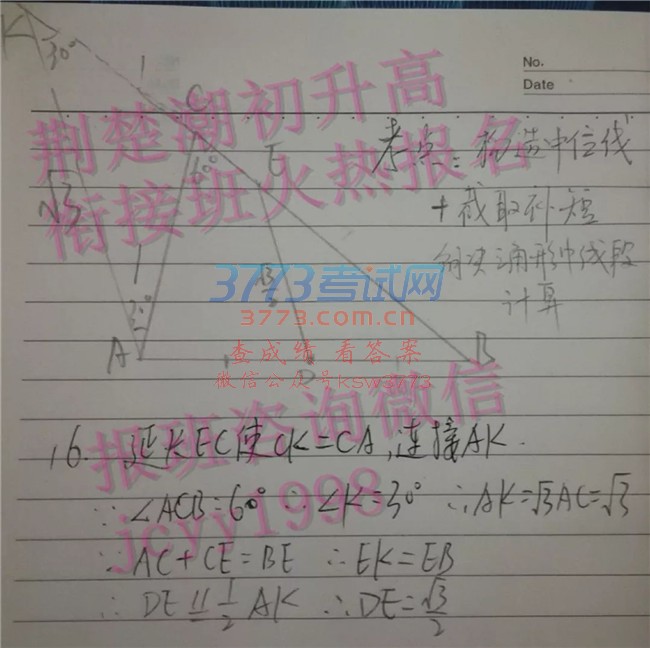 No.
Date
K
30°
1
C
60°
E
√3
1
30°
√3/2
A
D
B
考点:构造中位线
+截取补短
解决三角形中线段
计算
荆楚潮初升高
衔接班火热报名
3773考试网
3773.com.cn
查成绩 看答案
微信公众号ksw3773
报班咨询微信
jcyy1998
16. 延长EC使CK=CA,连接AK.
∵∠ACB=60° ∴∠K=30° ∴AK=√3AC=√3
∵AC+CE=BE ∴EK=EB
∴DE∥=1/2AK ∴DE=√3/2